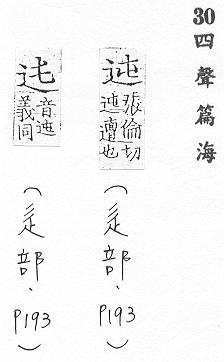 30四聲篇海
迍
張倫切
迍邅也
(辵部、P193)
音迍
義同
(辵部、P193)